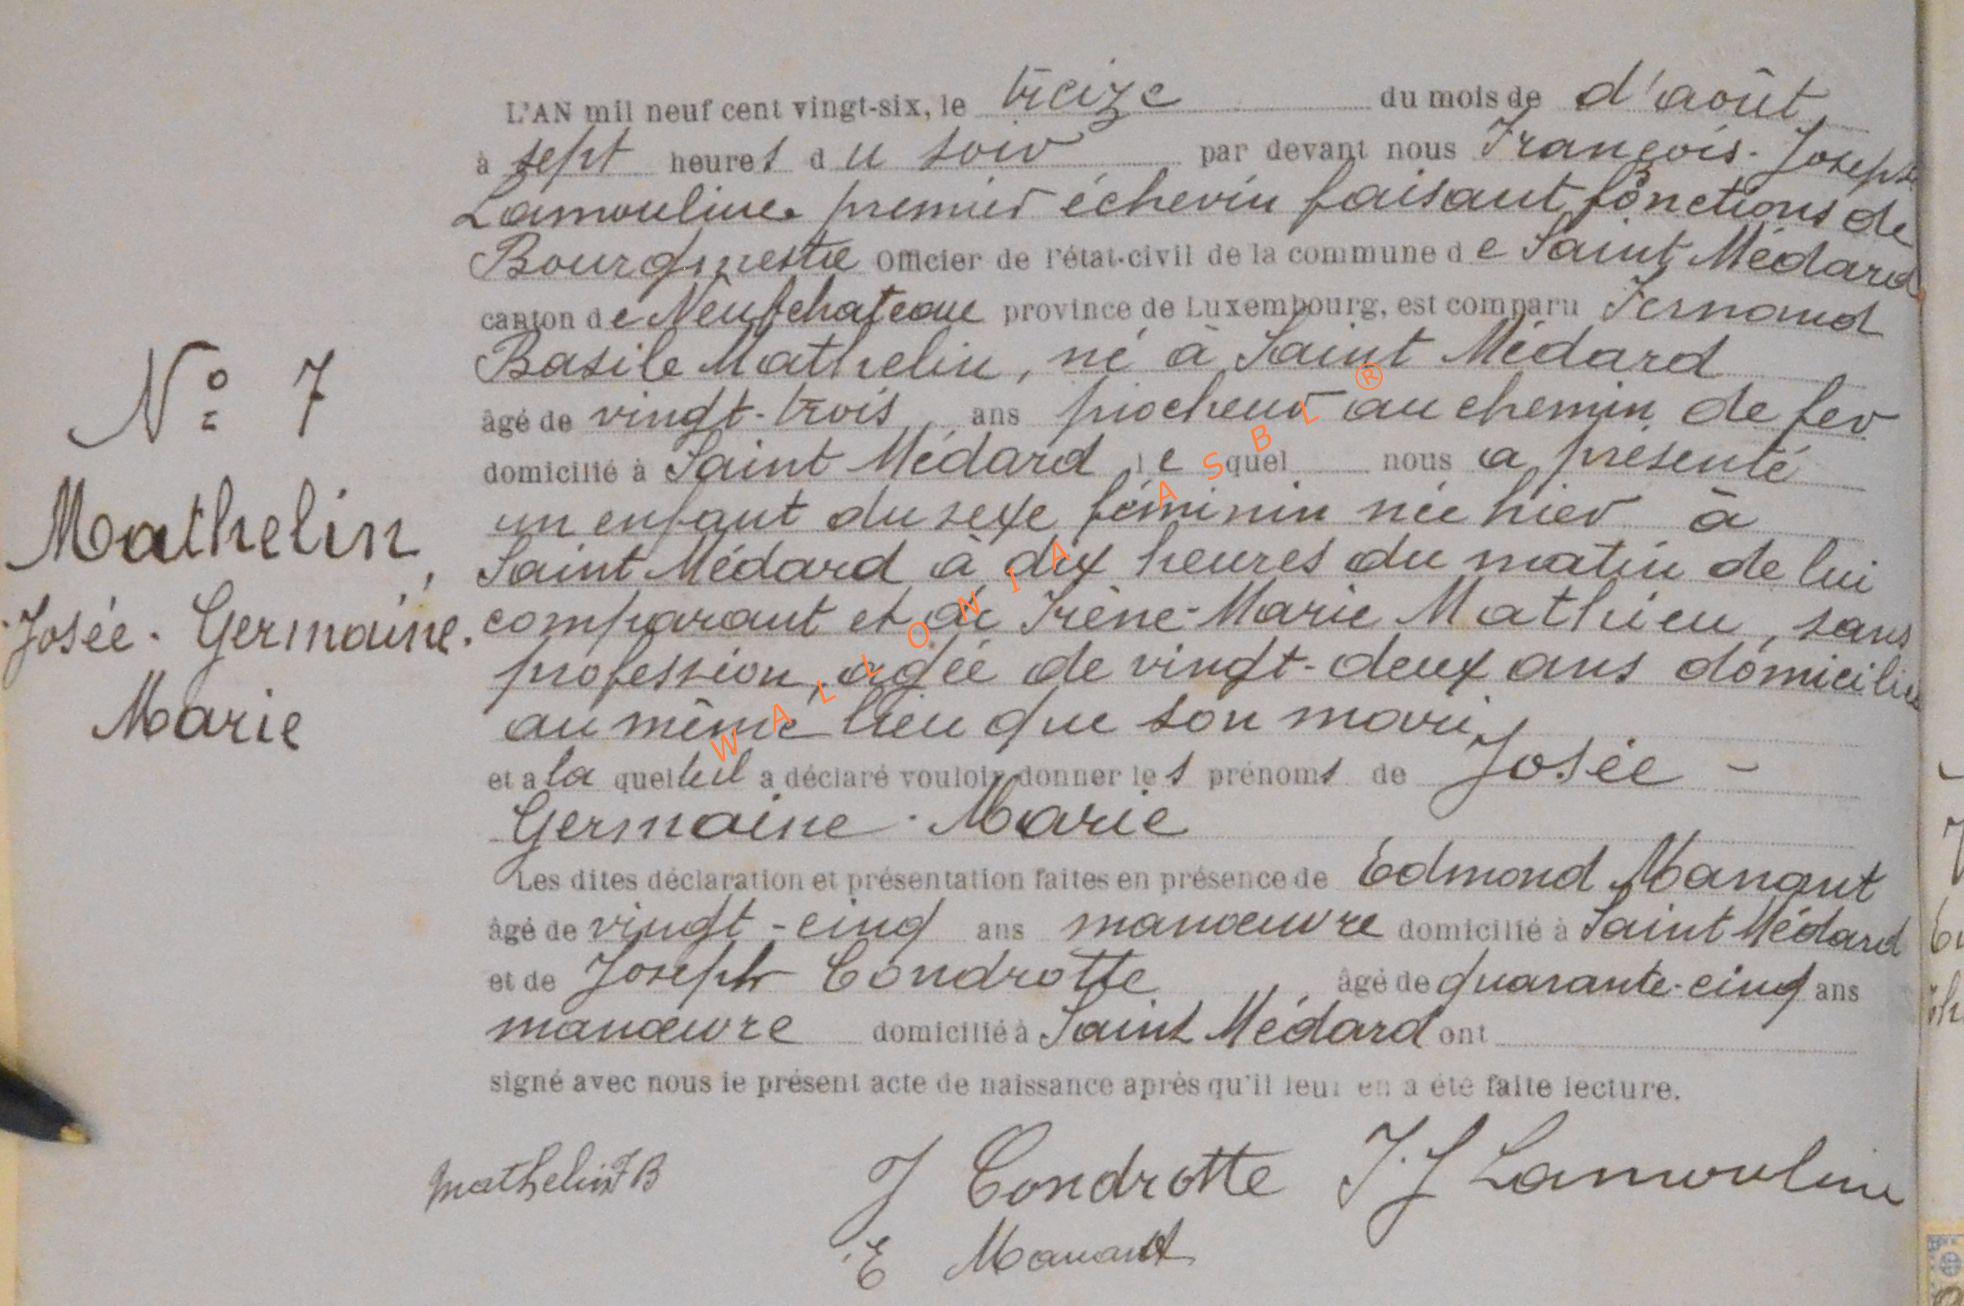 L'AN mil neuf cent vingt-six, le treize du mois de d'août
à sept heures du soir par devant nous François-Joseph
Lamouline premier échevin faisant fonctions de
Bourgmestre Officier de l'état-civil de la commune de Saint Médard
canton de Neufchateau province de Luxembourg, est comparu Fernand
Basile Mathelin, né à Saint Médard
âgé de vingt-trois ans piocheur au chemin de fer
domicilié à Saint Médard lequel nous a présenté
un enfant du sexe féminin née hier à
Saint Médard à dix heures du matin de lui
comparant et de Irène-Marie Mathieu, sans
profession, agée de vingt-deux ans domiciliée
au même lieu que son mari
et a la quelle il a déclaré vouloir donner les prénoms de Josée-
Germaine-Marie
Les dites déclaration et présentation faites en présence de Edmond Manant
âgé de vingt-cinq ans manœuvre domicilié à Saint Médard
et de Joseph Condrotte âgé de quarante-cinq ans
manœuvre domicilié à Saint Médard ont
signé avec nous le présent acte de naissance après qu'il leur en a été faite lecture.
Mathelin F B J Condrotte F. J Lamouline
E Manant
N° 7
Mathelin,
Josée-Germaine-
Marie
WALLONIA ASBL ®